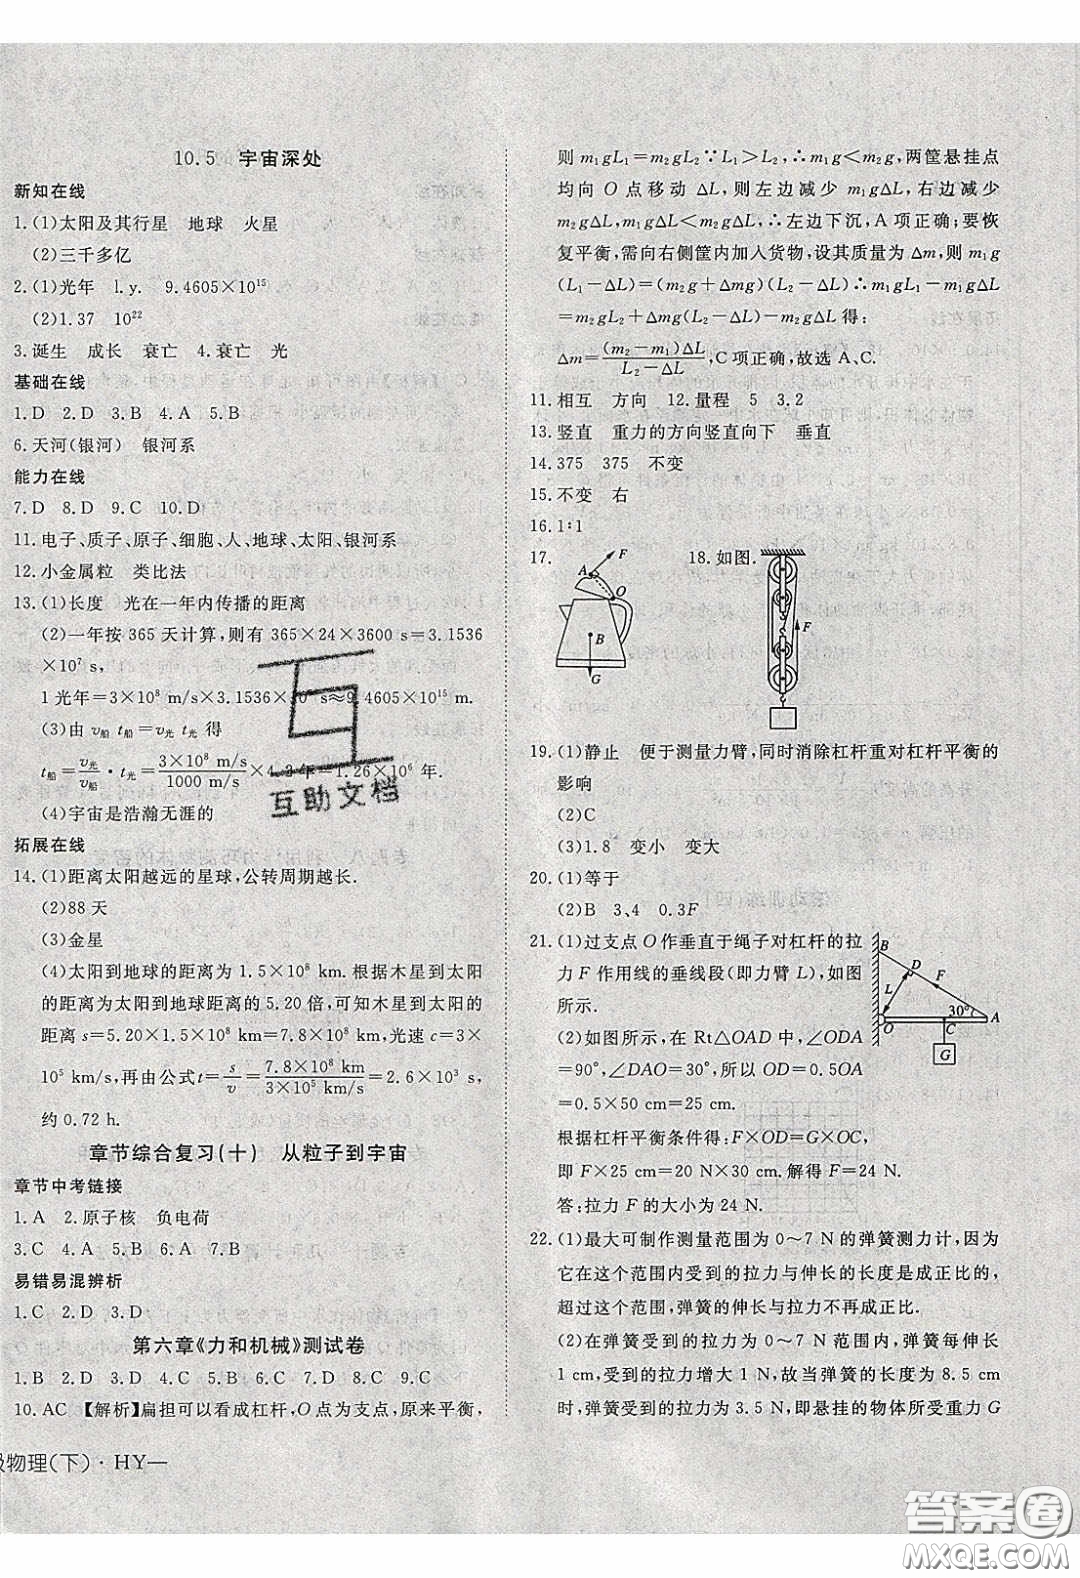 10.5　宇宙深处
新知在线
1.(1)太阳及其行星　地球　火星
(2)三千多亿
2.(1)光年　l.y.　9.4605×10¹⁵
(2)1.37　10²²
3.诞生　成长　衰亡　4.衰亡　光
基础在线
1.D　2.D　3.B　4.A　5.B
6.天河(银河)　银河系
能力在线
7.D　8.D　9.C　10.D
11.电子、质子、原子、细胞、人、地球、太阳、银河系
12.小金属粒　类比法
13.(1)长度　光在一年内传播的距离
(2)一年按365天计算,则有365×24×3600 s=3.1536
×10⁷ s,
1光年=3×10⁸ m/s×3.1536×10⁷ s≈9.4605×10¹⁵ m.
(3)由 v船 t船=v光 t光 得
t船=v光/v船·t光=(3×10⁸ m/s)/(1000 m/s)×4.2年=1.26×10⁶ 年.
(4)宇宙是浩瀚无涯的
拓展在线
14.(1)距离太阳越远的星球,公转周期越长.
(2)88天
(3)金星
(4)太阳到地球的距离为1.5×10⁸ km.根据木星到太阳
的距离为太阳到地球距离的5.20倍,可知木星到太阳的
距离s=5.20×1.5×10⁸ km=7.8×10⁸ km,光速c=3×
10⁵ km/s,再由公式t=s/v=(7.8×10⁸ km)/(3×10⁵ km/s)=2.6×10³ s,
约0.72 h.
章节综合复习(十)　从粒子到宇宙
章节中考链接
1.A　2.原子核　负电荷
3.C　4.A　5.B　6.A　7.B
易错易混辨析
1.C　2.D　3.D
第六章《力和机械》测试卷
1.B　2.D　3.D　4.C　5.C　6.C　7.D　8.C　9.C
10.AC　【解析】扁担可以看成杠杆,O点为支点,原来平衡,
级物理(下)·HY—
则m₁gL₁=m₂gL₂∵L₁>L₂,∴m₁g<m₂g,两筐悬挂点
均向O点移动ΔL,则左边减少m₁gΔL,右边减少
m₂gΔL,m₁gΔL<m₂gΔL,∴左边下沉,A项正确;要恢
复平衡,需向右侧筐内加入货物,设其质量为Δm,则m₁g
(L₁−ΔL)=(m₂g+Δmg)(L₂−ΔL),m₁gL₁−m₁gΔL
=m₂gL₂+ΔmgL₂−m₂gΔL−ΔmgΔL得:
Δm=(m₂−m₁)ΔL/(L₂−ΔL),C项正确,故选A、C.
11.相互　方向　12.量程　5　3.2
13.竖直　重力的方向竖直向下　垂直
14.375　375　不变
15.不变　右
16.1∶1
17.　18.如图.
F
A
O
B
G
F
19.(1)静止　便于测量力臂,同时消除杠杆重对杠杆平衡的
影响
(2)C
(3)1.8　变小　变大
20.(1)等于
(2)B　3、4　0.3F
21.(1)过支点O作垂直于绳子对杠杆的拉
力F作用线的垂线段(即力臂L),如图
所示.
B
D
F
L
30°
O
C
A
G
(2)如图所示,在Rt△OAD中,∠ODA
=90°,∠DAO=30°,所以OD=0.5OA
=0.5×50 cm=25 cm.
根据杠杆平衡条件得:F×OD=G×OC,
即F×25 cm=20 N×30 cm.解得F=24 N.
答:拉力F的大小为24 N.
22.(1)最大可制作测量范围为0～7 N的弹簧测力计,因为它
在这个范围内受到的拉力与伸长的长度是成正比的,
超过这个范围,弹簧的伸长与拉力不再成正比.
(2)在弹簧受到的拉力在0～7 N范围内,弹簧每伸长
1 cm受到的拉力增大1 N,故当弹簧的长度为8.5 cm
时,弹簧受到的拉力为3.5 N,即悬挂的物体所受重力G
互助文档
答案圈
MXQE.COM